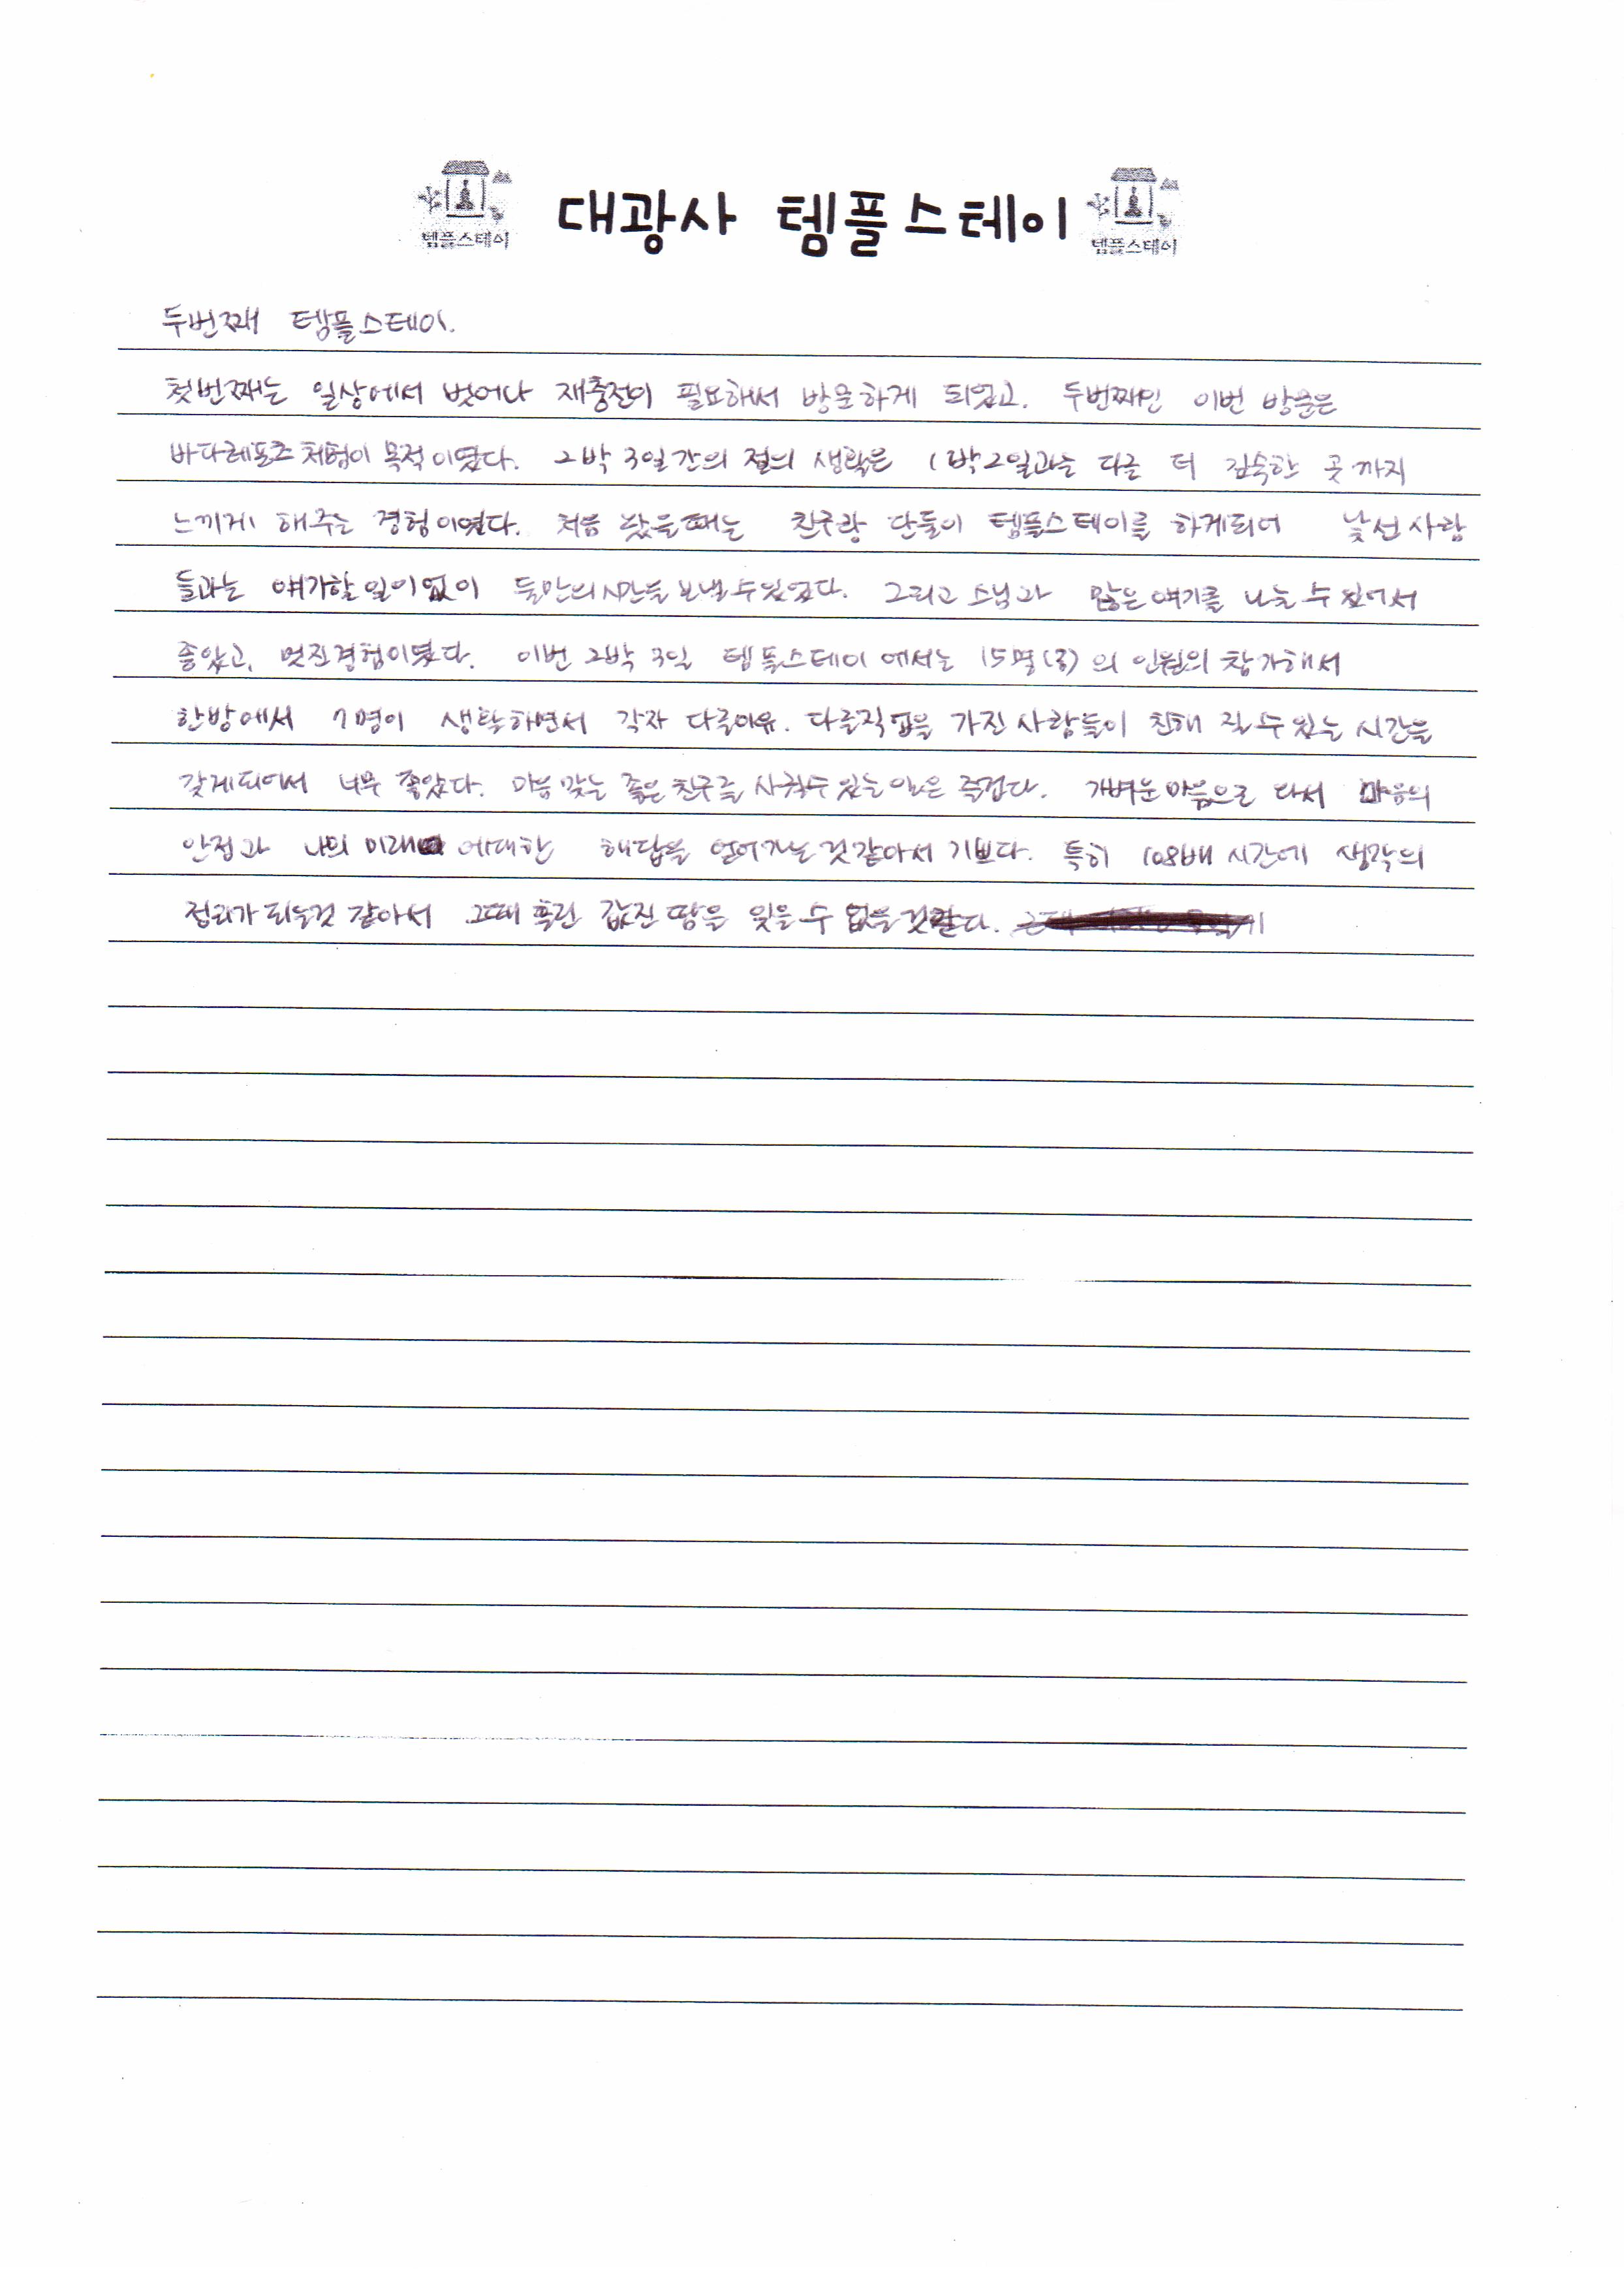 템플스테이 대광사 템플스테이 템플스테이
두번째 템플스테이.
첫번째는 일상에서 벗어나 재충전이 필요해서 방문하게 되었고, 두번째인 이번 방문은
바다레포츠체험이 목적이였다. 2박 3일간의 절의 생활은 1박2일과는 다른 더 깊숙한 곳까지
느끼게 해주는 경험이였다. 처음 왔을때는 친구랑 단둘이 템플스테이를 하게되어 낯선사람
들과는 얘기할일이없이 둘만의시간을 보낼수있었다. 그리고 스님과 많은얘기를 나눌 수 있어서
좋았고, 멋진경험이였다. 이번 2박 3일 템플스테이에서는 15명 의 인원의 참가해서
한방에서 7명이 생활하면서 각자 다른이유. 다른직업을 가진사람들이 친해 질수있는 시간을
갖게되어서 너무 좋았다. 마음맞는 좋은친구를 사귈수있는일은 즐겁다. 개벼운마음으로 다시 마음의
안정과 나의 미래에대한 해답을 얻어가는것같아서 기쁘다. 특히 108배 시간에 생각의
정리가되는것 같아서 그때 흘린 값진 땀을 잊을 수 없을것같다.